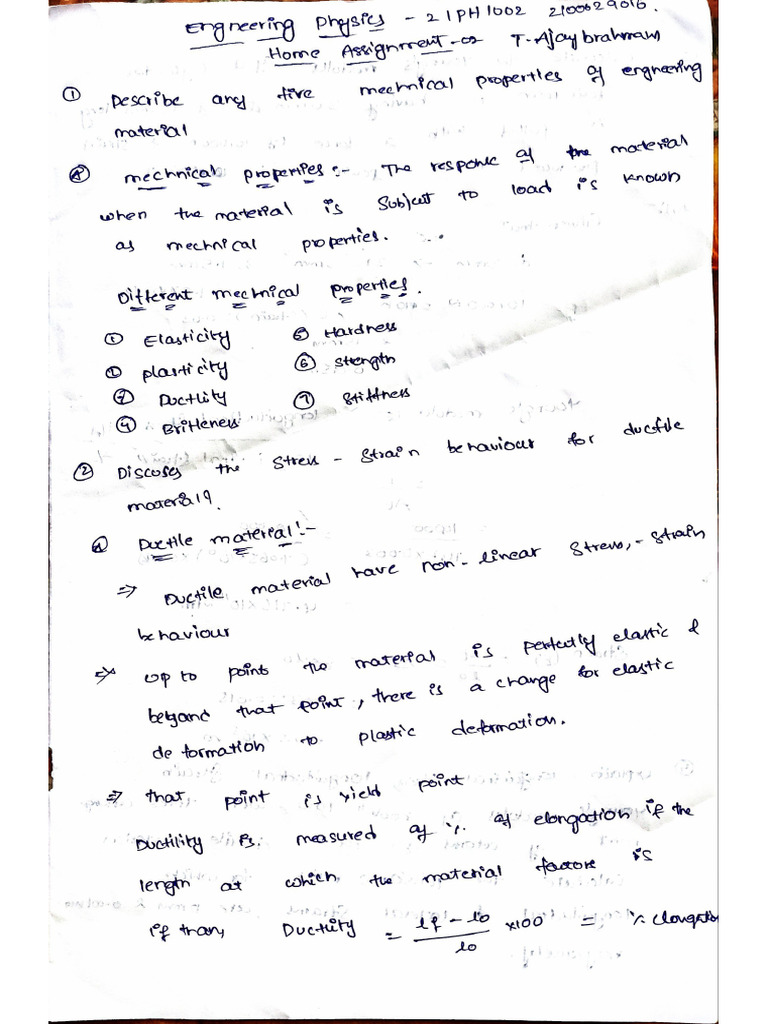 Engneering Physics - 21PH1002 2100629016.
Home Assignment-02 T. Ajaybrahmam
① Describe any five mechnical properties of engneering
material
Ⓐ mechnical properties :- The response of the material
when the material is Subject to load is known
as mechnical properties.
Different mechnical properties.
① Elasticity ⑤ Hardness
① plasticity ⑥ strength
⑦ Ductility ⑦ stiffness
④ Britleness
② Discuses the stress - strain behaviour for ductile
material?
Ⓐ Ductile material :-
⇒ Ductile material have non-linear stress, - strain
behaviour
⇒ up to point the material is perfectly elastic &
beyand that point, there is a change for elastic
deformation to plastic deformation.
⇒ that point is yield point
Ductility is measured of %. of elongation if the
length at which the material factore is
if than, Ductility = lf - lo / lo ×100 = % elongation